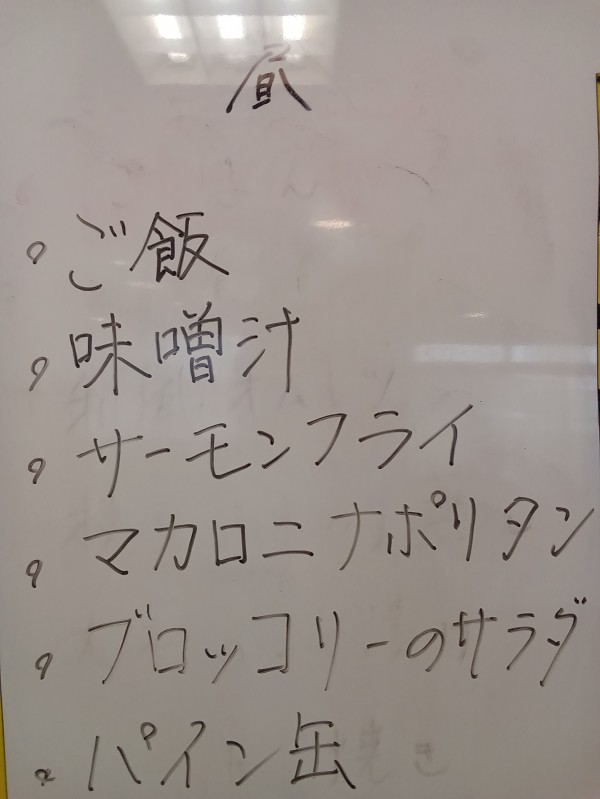 昼
ご飯
味噌汁
サーモンフライ
マカロニナポリタン
ブロッコリーのサラダ
パイン缶